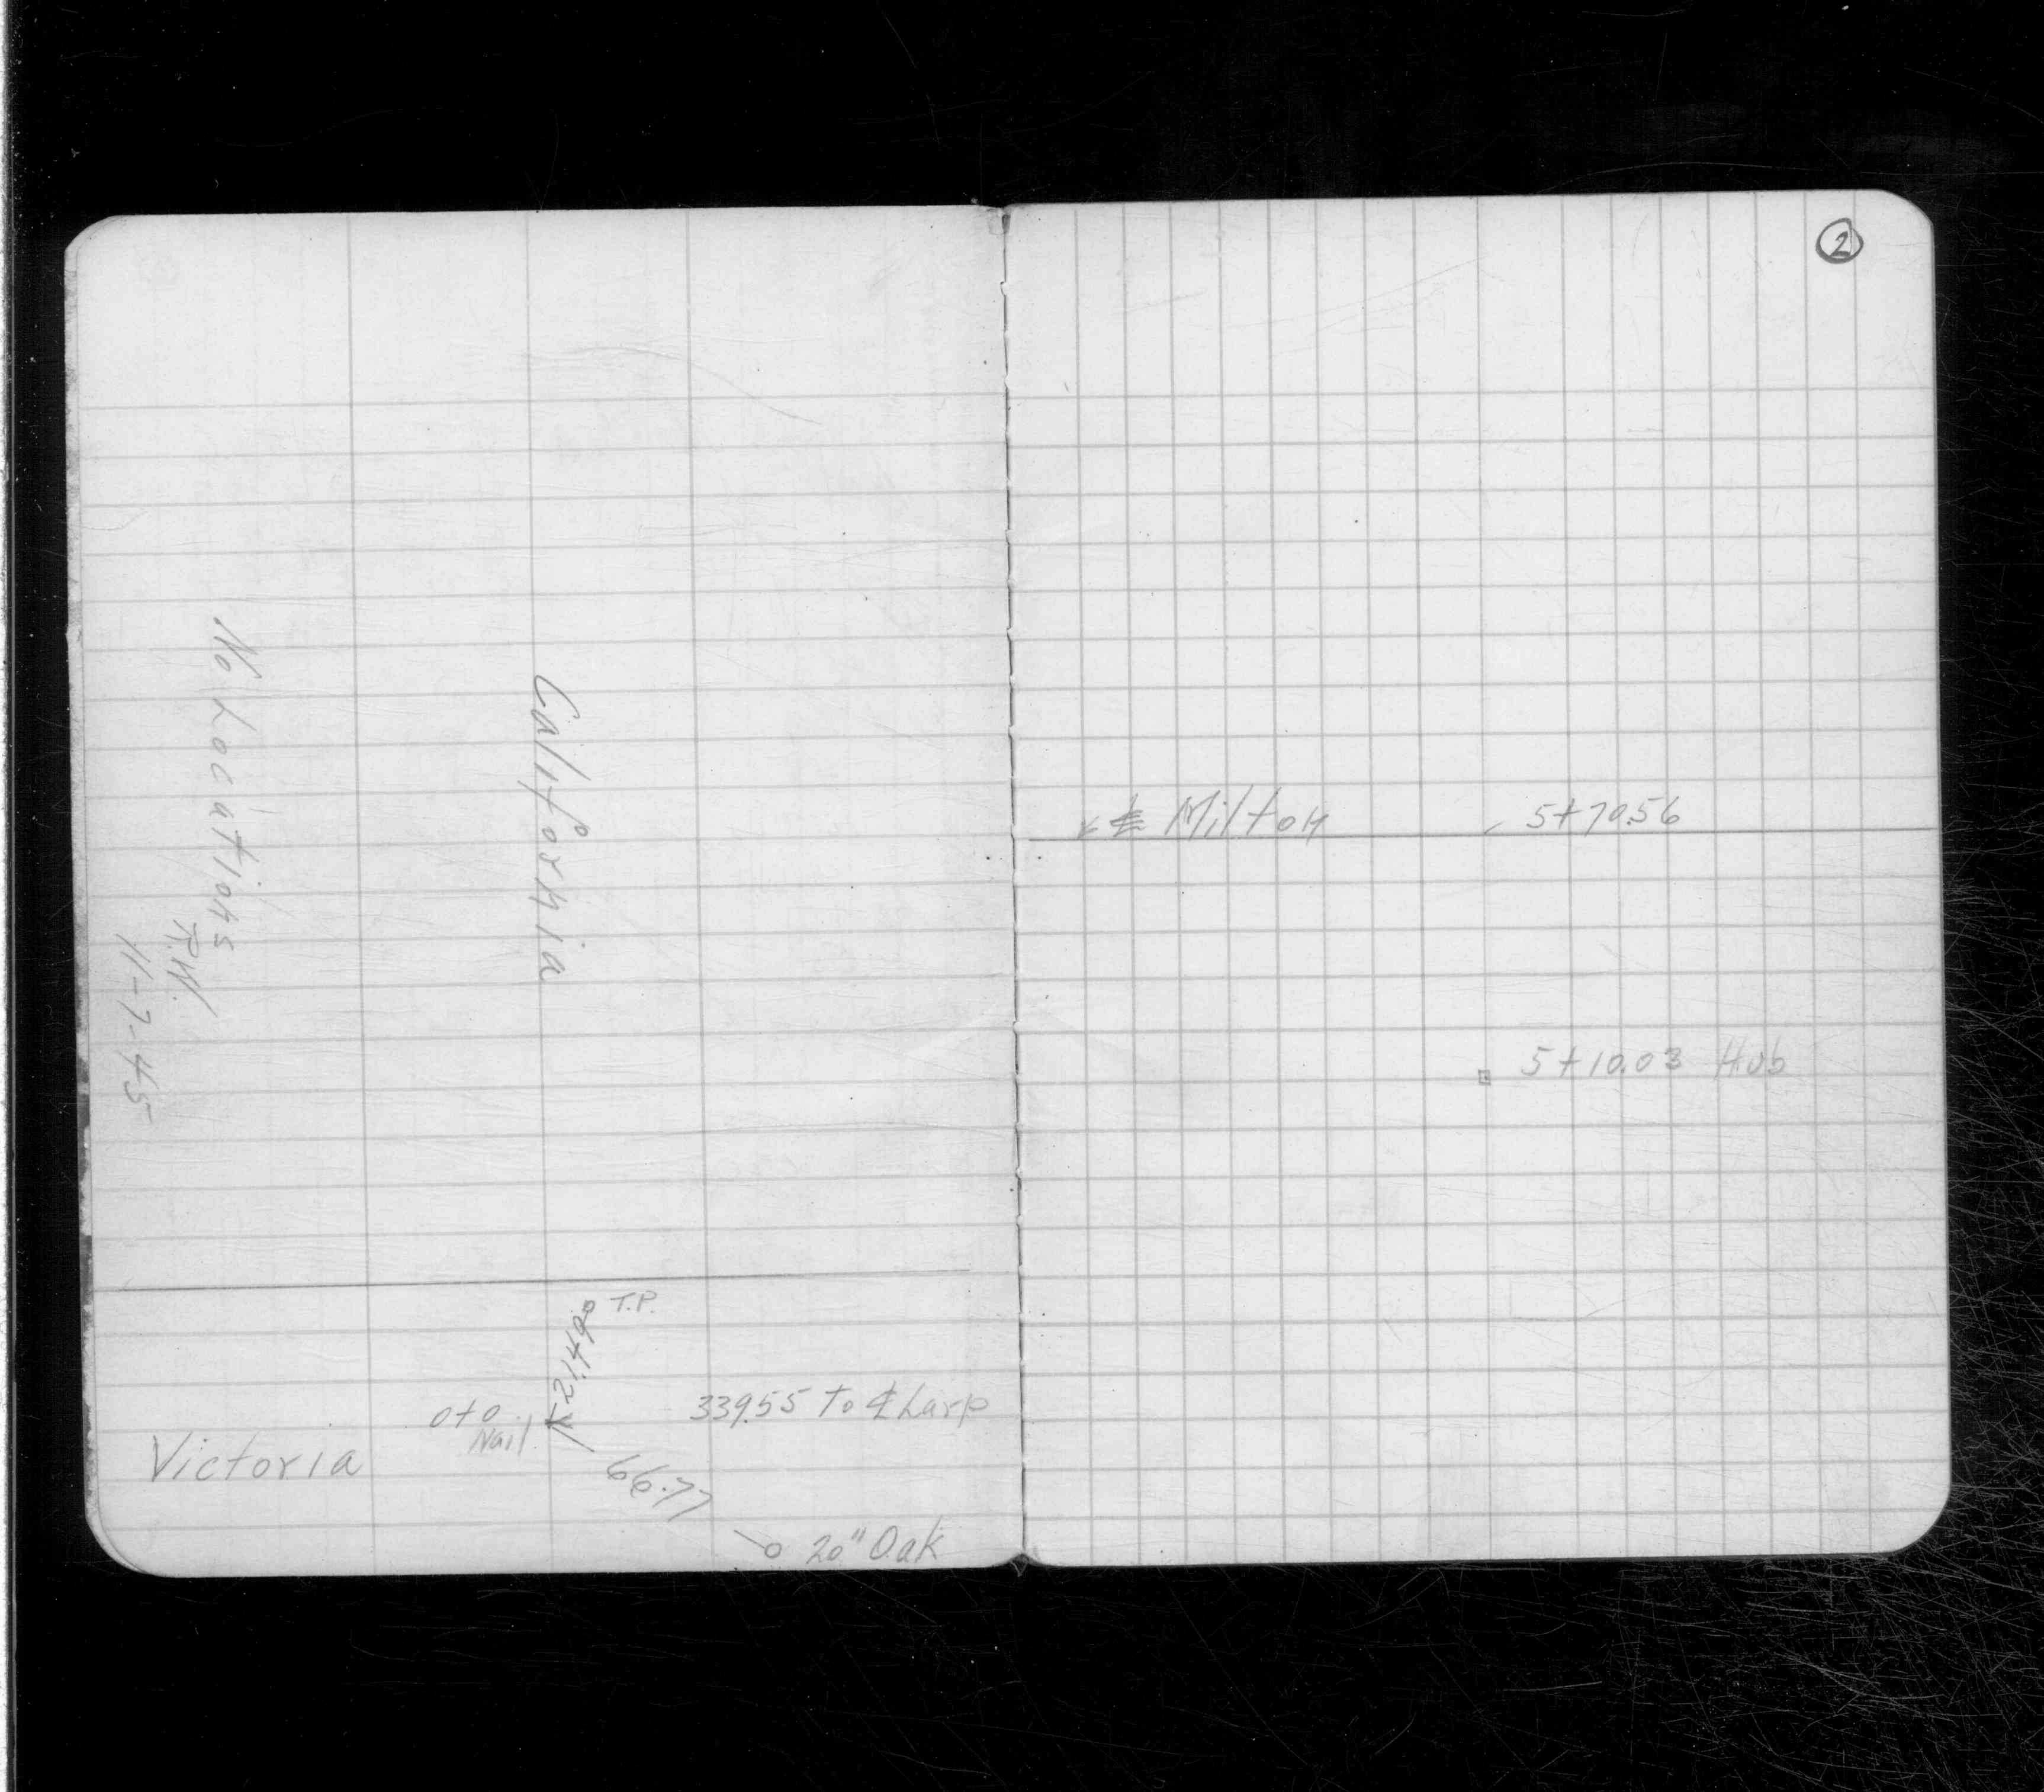 No Locations
T.P.W.
11-7-45
California
T.P.
0+0
Nail
339.55 to ℄ Larp
Victoria
66.77
20" Oak
2
℄ Milton 5+70.56
5+10.03 Hub